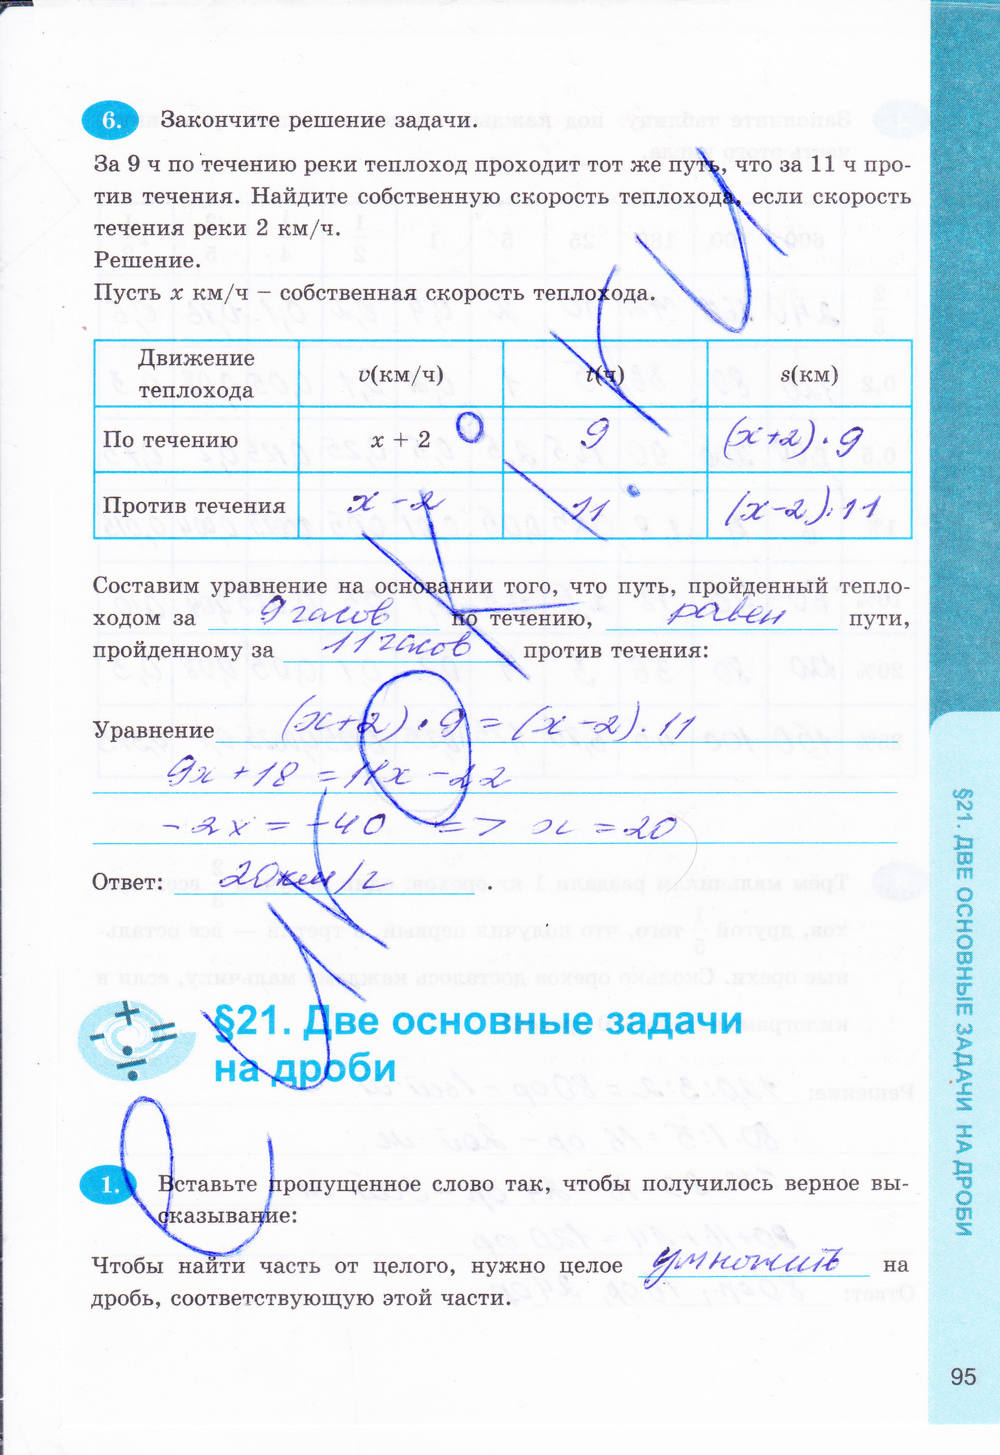 6. Закончите решение задачи.
За 9 ч по течению реки теплоход проходит тот же путь, что за 11 ч про-
тив течения. Найдите собственную скорость теплохода, если скорость
течения реки 2 км/ч.
Решение.
Пусть x км/ч – собственная скорость теплохода.
Движение теплохода v(км/ч) t(ч) s(км)
По течению x + 2 9 (x+2)·9
Против течения x-2 11 (x-2)·11
Составим уравнение на основании того, что путь, пройденный тепло-
ходом за 9 часов по течению, равен пути,
пройденному за 11 часов против течения:
Уравнение (x+2)·9 = (x-2)·11
9x+18 = 11x-22
-2x = -40 => x = 20
Ответ: 20км/ч.
§21. Две основные задачи
на дроби
1. Вставьте пропущенное слово так, чтобы получилось верное вы-
сказывание:
Чтобы найти часть от целого, нужно целое умножить на
дробь, соответствующую этой части.
§21. ДВЕ ОСНОВНЫЕ ЗАДАЧИ НА ДРОБИ
95